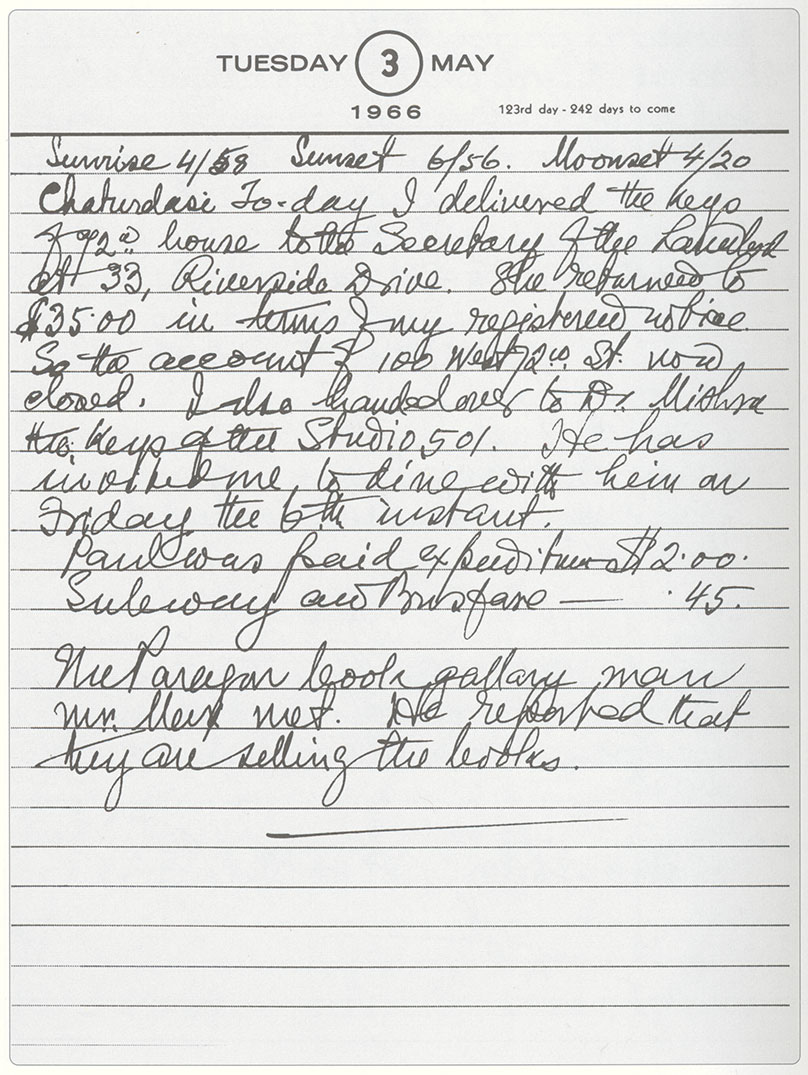 TUESDAY 3 MAY
1966 123rd day - 242 days to come
Sunrise 4/58 Sunset 6/56. Moonset 4/20
Chaturdasi To-day I delivered the keys
of 72nd house to the Secretary of the Landlord
at 33, Riverside Drive. She returned to
$35.00 in terms of my registered notice.
So the account of 100 West 72nd St. now
closed. I also handed over to Dr. Mishra
the keys of the Studio 501. He has
invited me to dine with him on
Friday the 6th instant.
Paul was paid expenditure $2.00.
Subway and Busfare — .45.
The Paragon book gallary man
Mr. met. He reported that
they are selling the books.